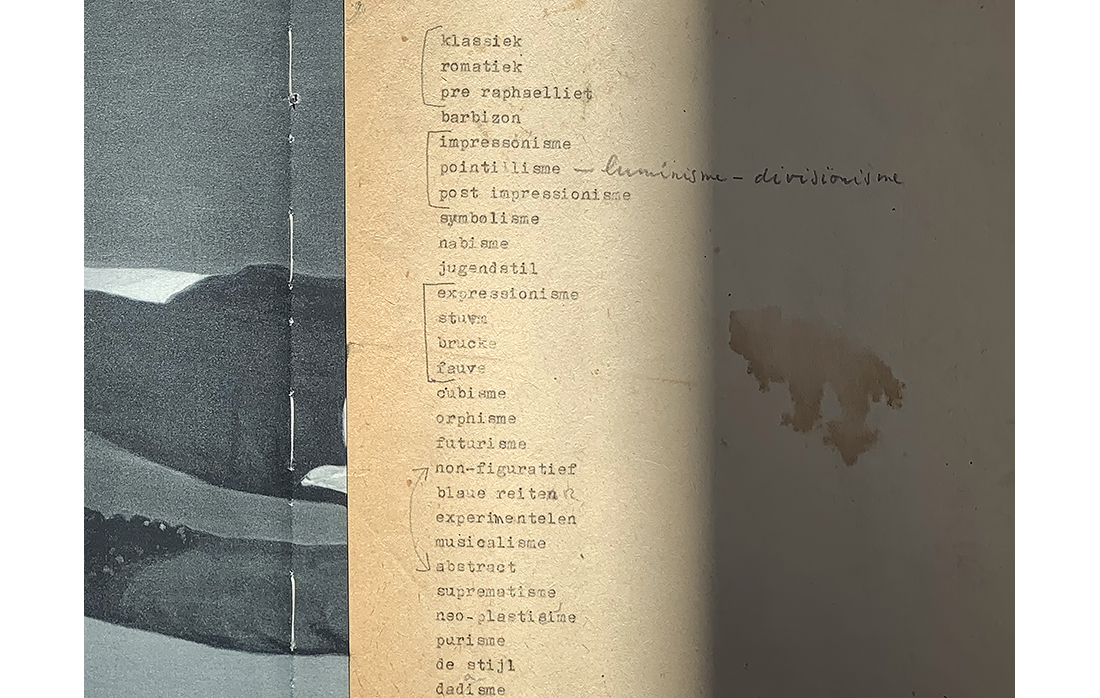 klassiek
romatiek
pre raphaelliet
barbizon
impressonisme
pointillisme — luminisme - divisionisme
post impressionisme
symbolisme
nabisme
jugendstil
expressionisme
sturm
brucke
fauve
cubisme
orphisme
futurisme
non-figuratief
blaue reiten R
experimentelen
musicalisme
abstract
suprematisme
neo-plastisime
purisme
de stijl
dadisme